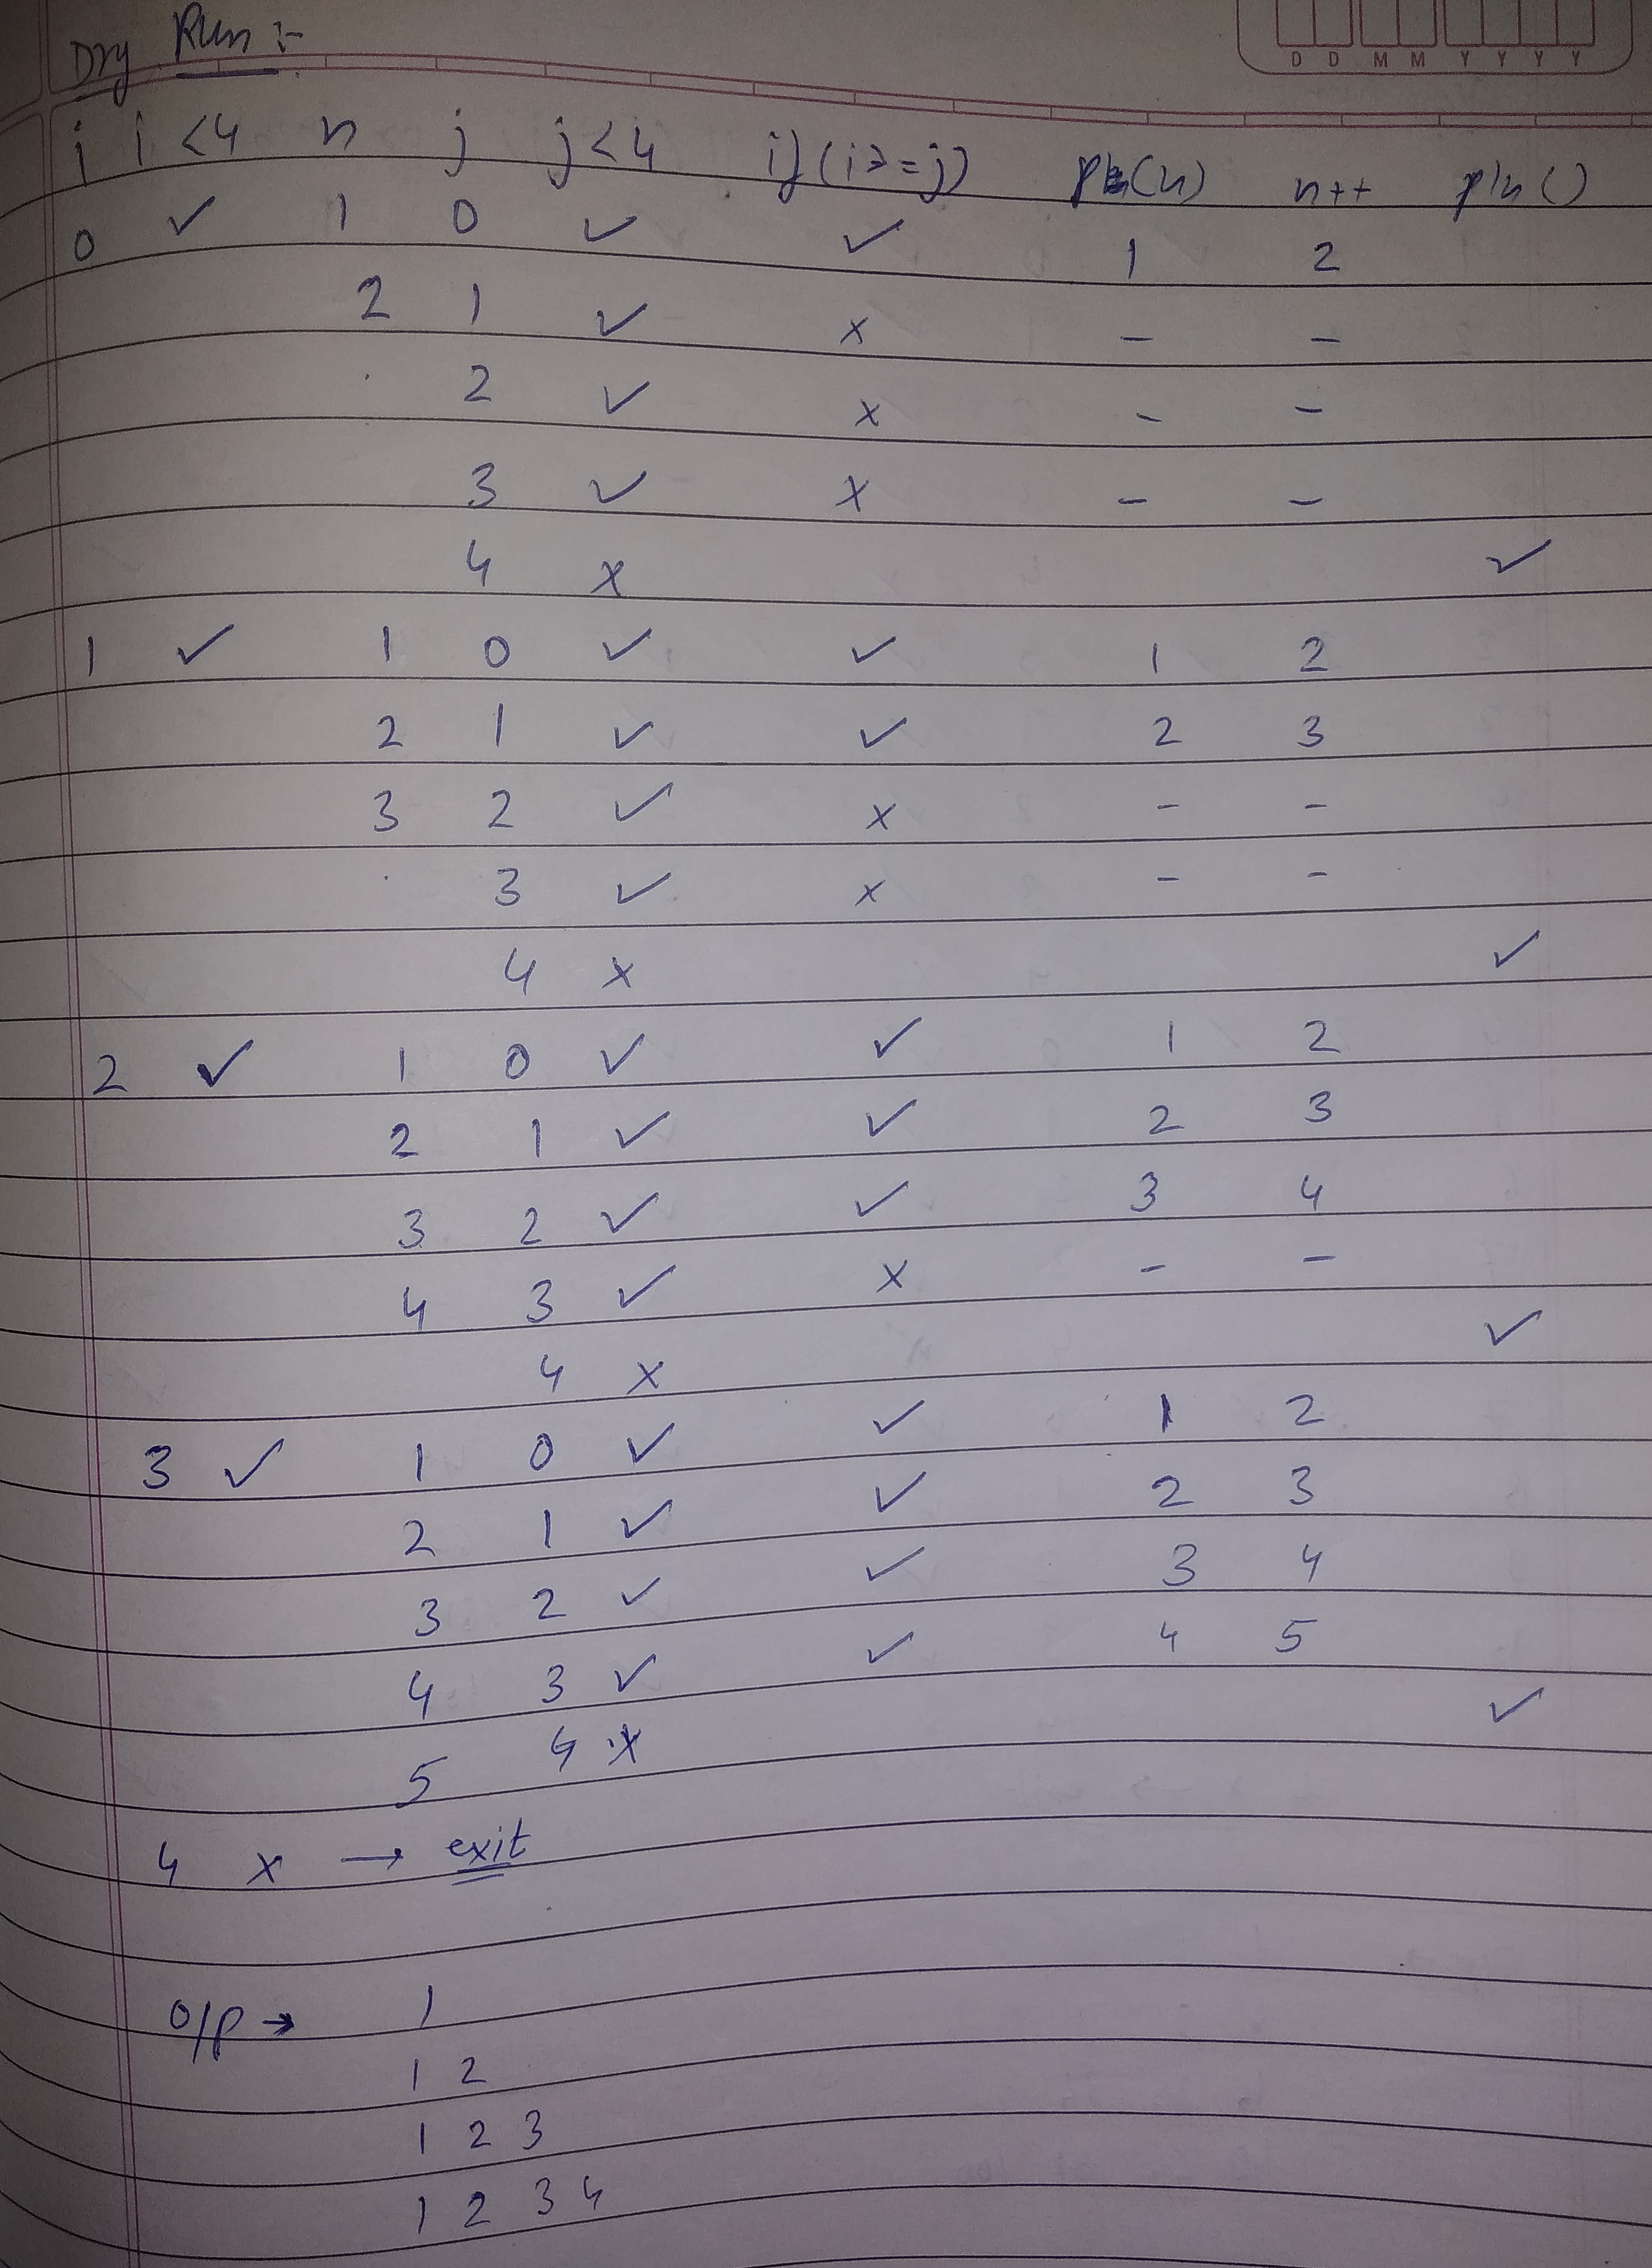 D D M M Y Y Y Y
Dry Run :-
i i<4 n j j<4 if(i>=j) n++ pln()
0 ✓ 1 0 ✓ ✓ 1 2
2 1 ✓ x - -
2 ✓ x - -
3 ✓ x - -
4 x ✓
1 ✓ 1 0 ✓ ✓ 1 2
2 1 ✓ ✓ 2 3
3 2 ✓ x - -
3 ✓ x - -
4 x ✓
2 ✓ 1 0 ✓ ✓ 1 2
2 1 ✓ ✓ 2 3
3 2 ✓ ✓ 3 4
4 3 ✓ x - -
4 x ✓
3 ✓ 1 0 ✓ ✓ 1 2
2 1 ✓ ✓ 2 3
3 2 ✓ ✓ 3 4
4 3 ✓ ✓ 4 5
5 4 x ✓
4 x → exit
o/p → 1
1 2
1 2 3
1 2 3 4